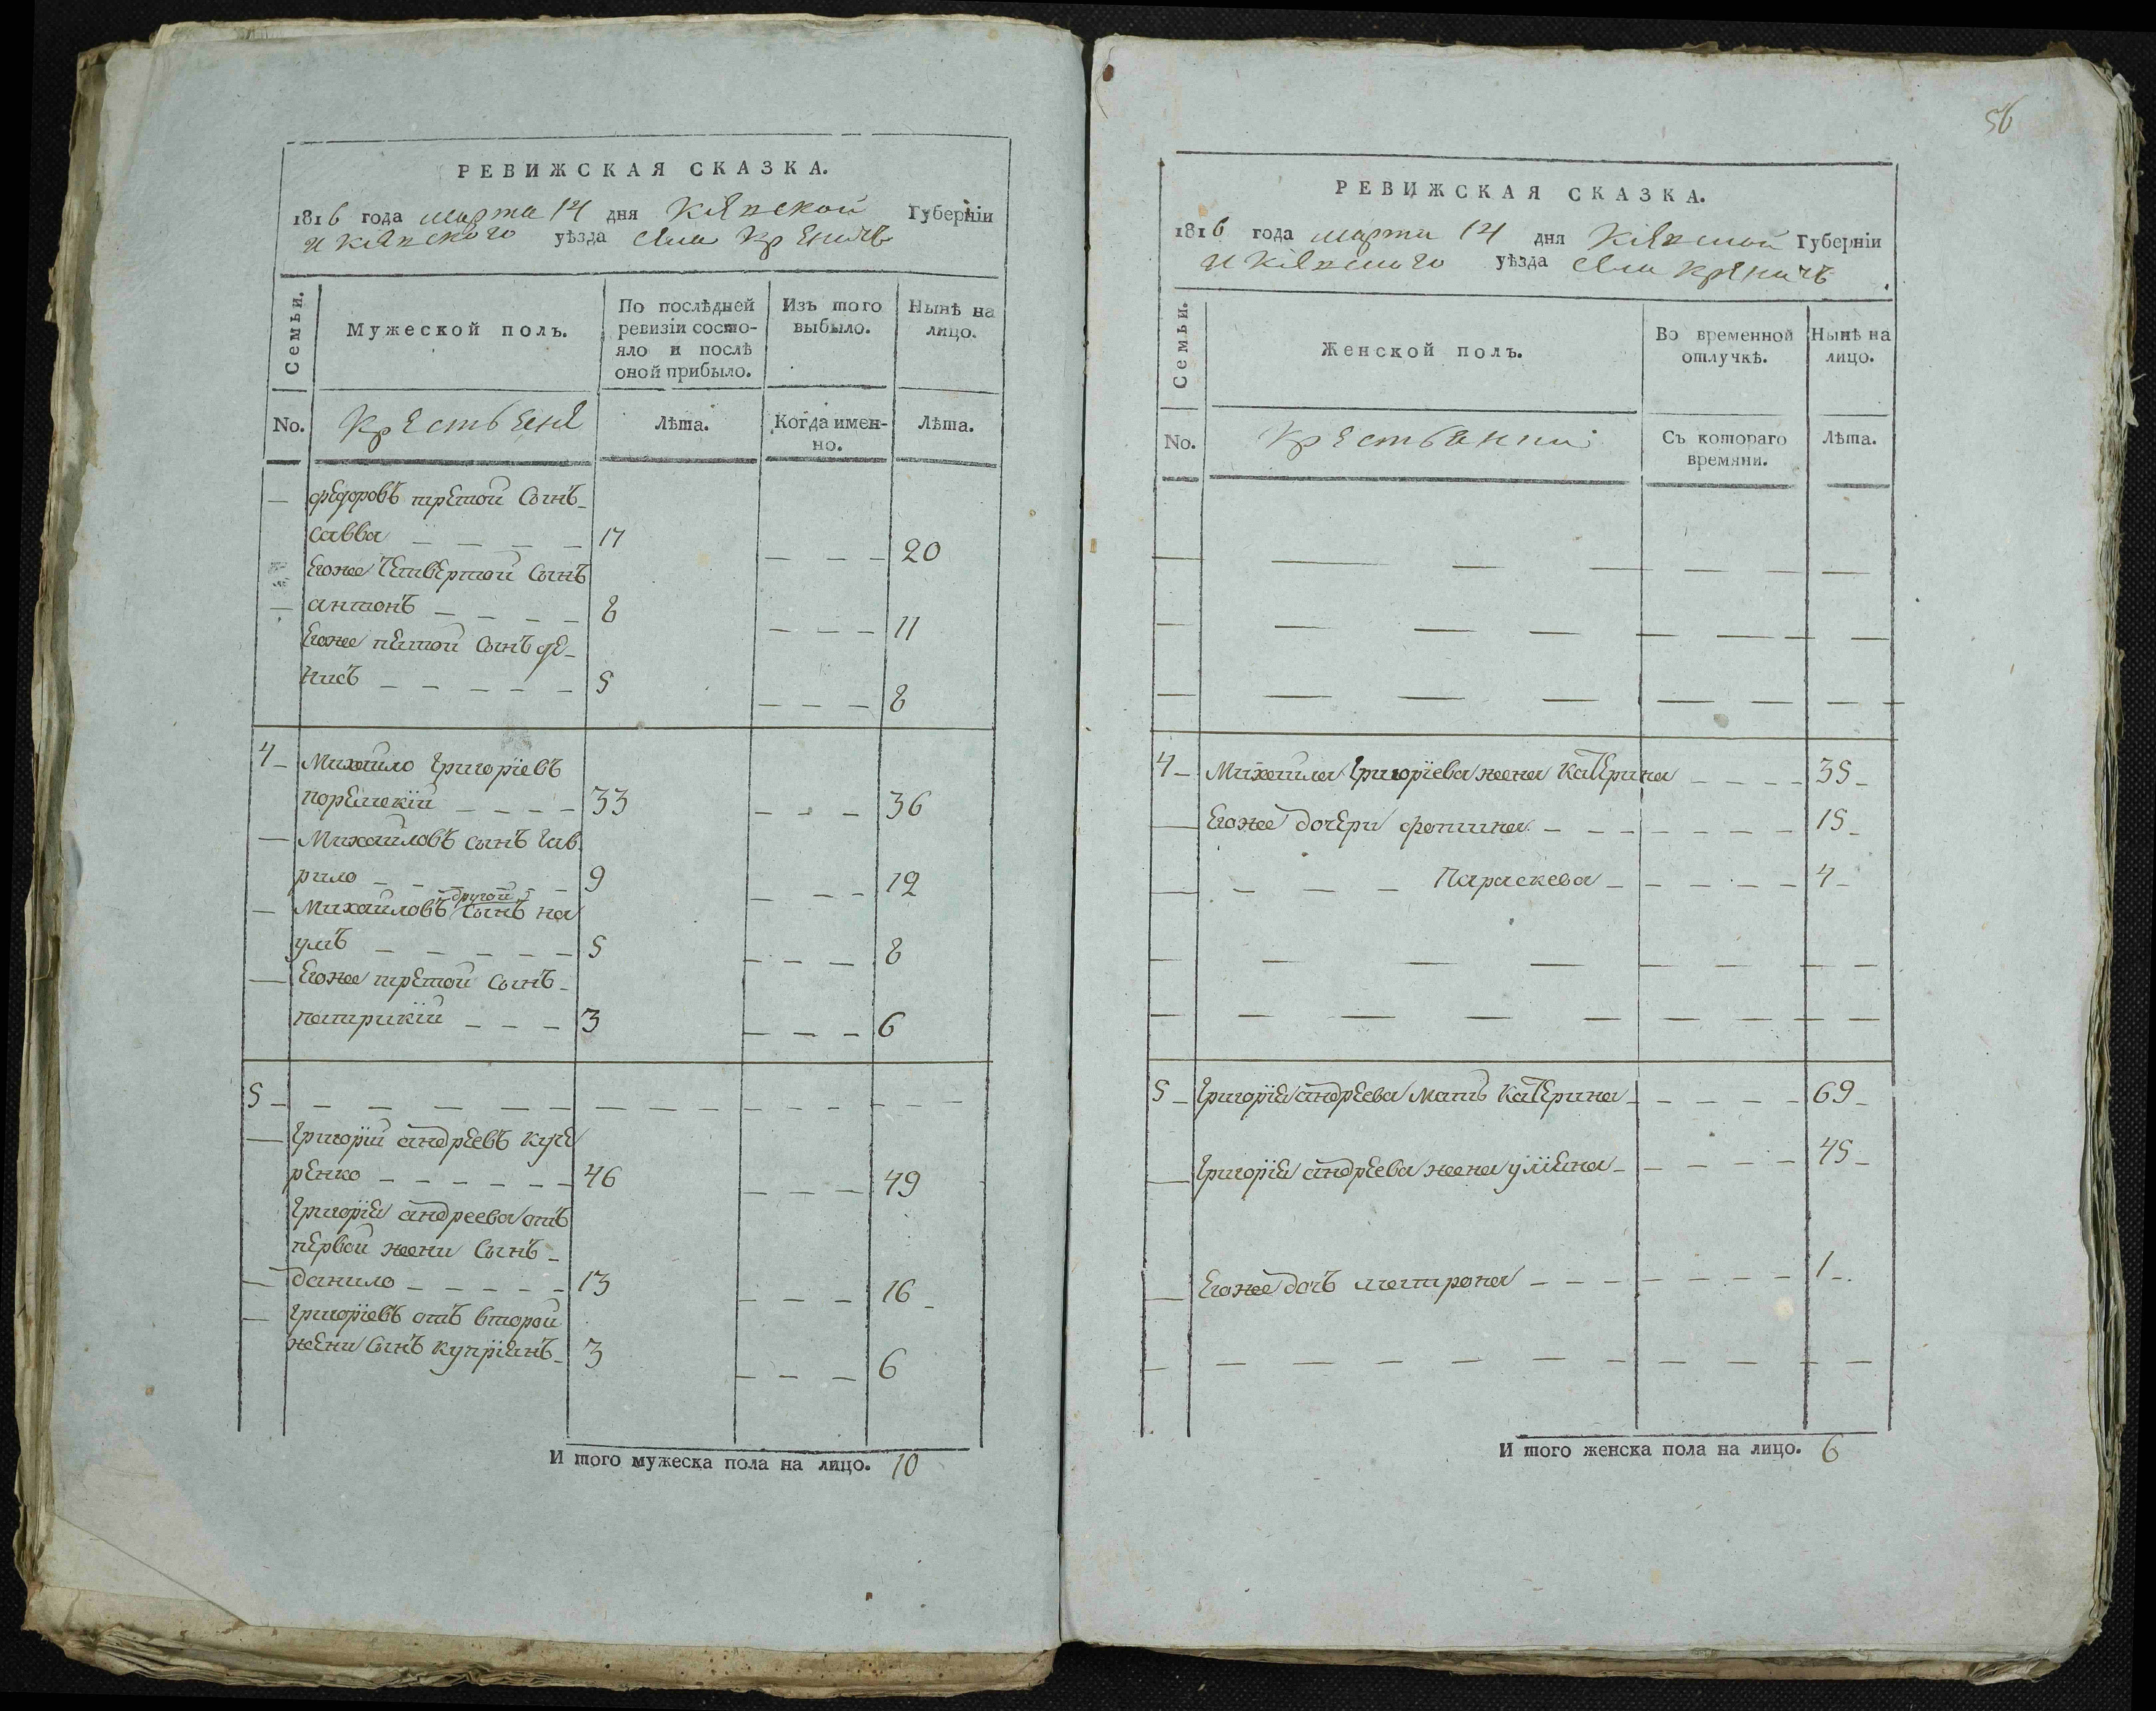 РЕВИЖСКАЯ СКАЗКА.
1816 года марта 14 дня Кіевской Губерніи
и Кіевского уѣзда села Креничъ
Семьи.
Мужеской полъ.
По послѣдней ревизіи состояло и послѣ оной прибыло.
Изъ того выбыло.
Нынѣ на лицо.
No.
Крестьене
Лѣта.
Когда именно.
Лѣта.
— федоровъ третой Сынъ
савва 17 20
Егоже Четвертой Сынъ
— антонъ 8 11
Егоже пятой Сынъ де-
нисъ 5 8
4 Михайло Григоріевъ
33 36
— Михайловъ сынъ Гав
рило 9 12
— Михайловъ другой Сынъ на
умъ 5 8
— Егоже третой Сынъ
патрикій 3 6
5
— Григорій андреевъ куче
ренко 46 49
Григорія андреева отъ
первой жени Сынъ
— данило 13 16
— Григоріевъ отъ второй
жени Сынъ купріянъ 3 6
И того мужеска пола на лицо. 10
56
РЕВИЖСКАЯ СКАЗКА.
1816 года марта 14 дня Кіевской Губерніи
и Кіевского уѣзда села Креничъ
Семьи.
Женской полъ.
Во временной отлучкѣ.
Нынѣ на лицо.
No.
Крестьянки
Съ котораго времяни.
Лѣта.
4 Михайла Григоріева жена Катерина 35
— Егоже дочери фотина 15
— Параскева 4
5 Григорія андреева мать Катерина 69
— Григорія андреева жена уліяна 45
— Егоже дочъ матрона 1
И того женска пола на лицо. 6